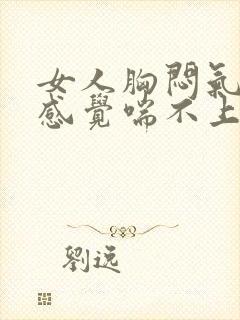 女人胸悶氣
感覺喘不上
劉逸